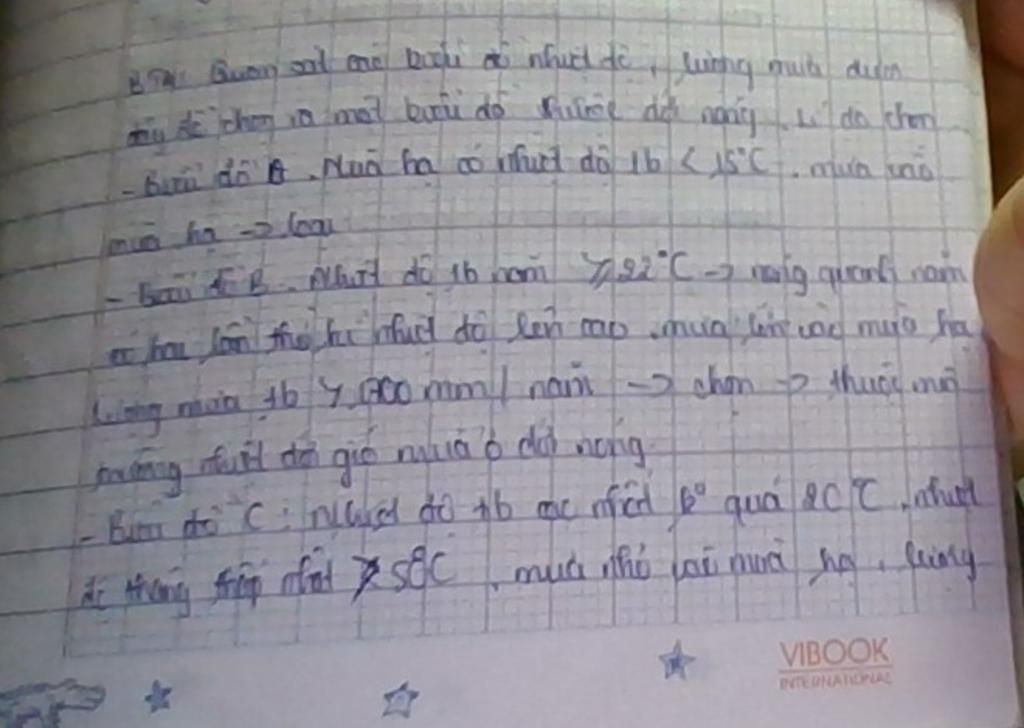 Quan sát các biểu đồ nhiệt độ, lượng mưa dưới
để chọn ra một biểu đồ thuộc đới nóng. Lí do chọn
- Biểu đồ A. Mùa hạ có nhiệt độ tb < 15°C. mưa vào
mùa hạ -> loại
- Biểu đồ B. Nhiệt độ tb năm 22°C -> nóng quanh năm
có hai lần nhiệt độ lên cao. mưa lớn vào mùa hạ
Lượng mưa tb mm/ năm -> chọn -> thuộc môi
trường nhiệt đới gió mùa ở đới nóng
- Biểu đồ C: Nhiệt độ tb quá 20°C, nhiệt
độ tháng thấp nhất 5°C, mưa nhỏ vào mùa hạ, lượng
VIBOOK
INTERNATIONAL